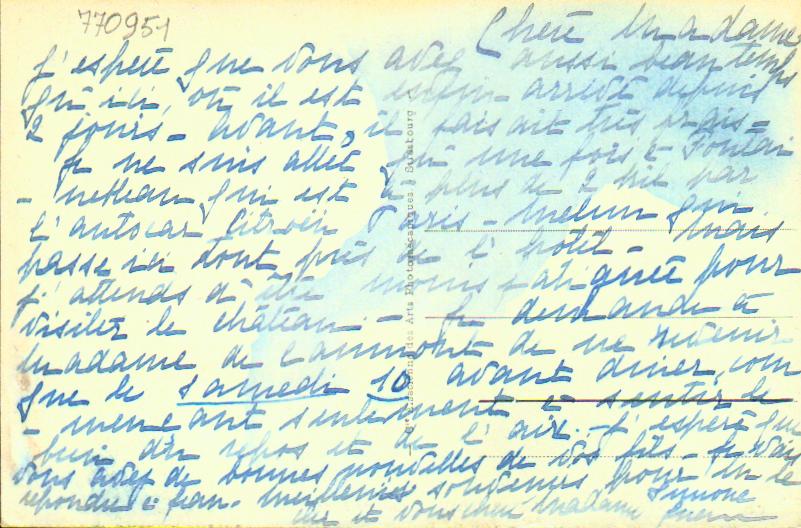 770951
Chère Madame
J'espère que vous avez aussi beau temps
qu'ici, où il est enfin arrivé depuis
2 jours - avant, il faisait très frais -
Je ne suis allée qu'une fois à Fontai
- nebleau qui est à plus de 2 h par
l'autocar Citroën Paris - Melun qui
passe ici tout près de l'hôtel - mais
j'attends d'être moins fatiguée pour
visiter le château - Je demande à
Madame de Caumont de ne revenir
que le samedi 10 avant diner, com
- mençant seulement à sentir le
bien du repos et de l'air - J'espère que
vous avez de bonnes nouvelles de vos fils - Je vais
répondre à Jean. Meilleurs souvenirs pour M le
et vous chère Madame Simone
Sté Alsacienne des Arts Photomécaniques, Strasbourg